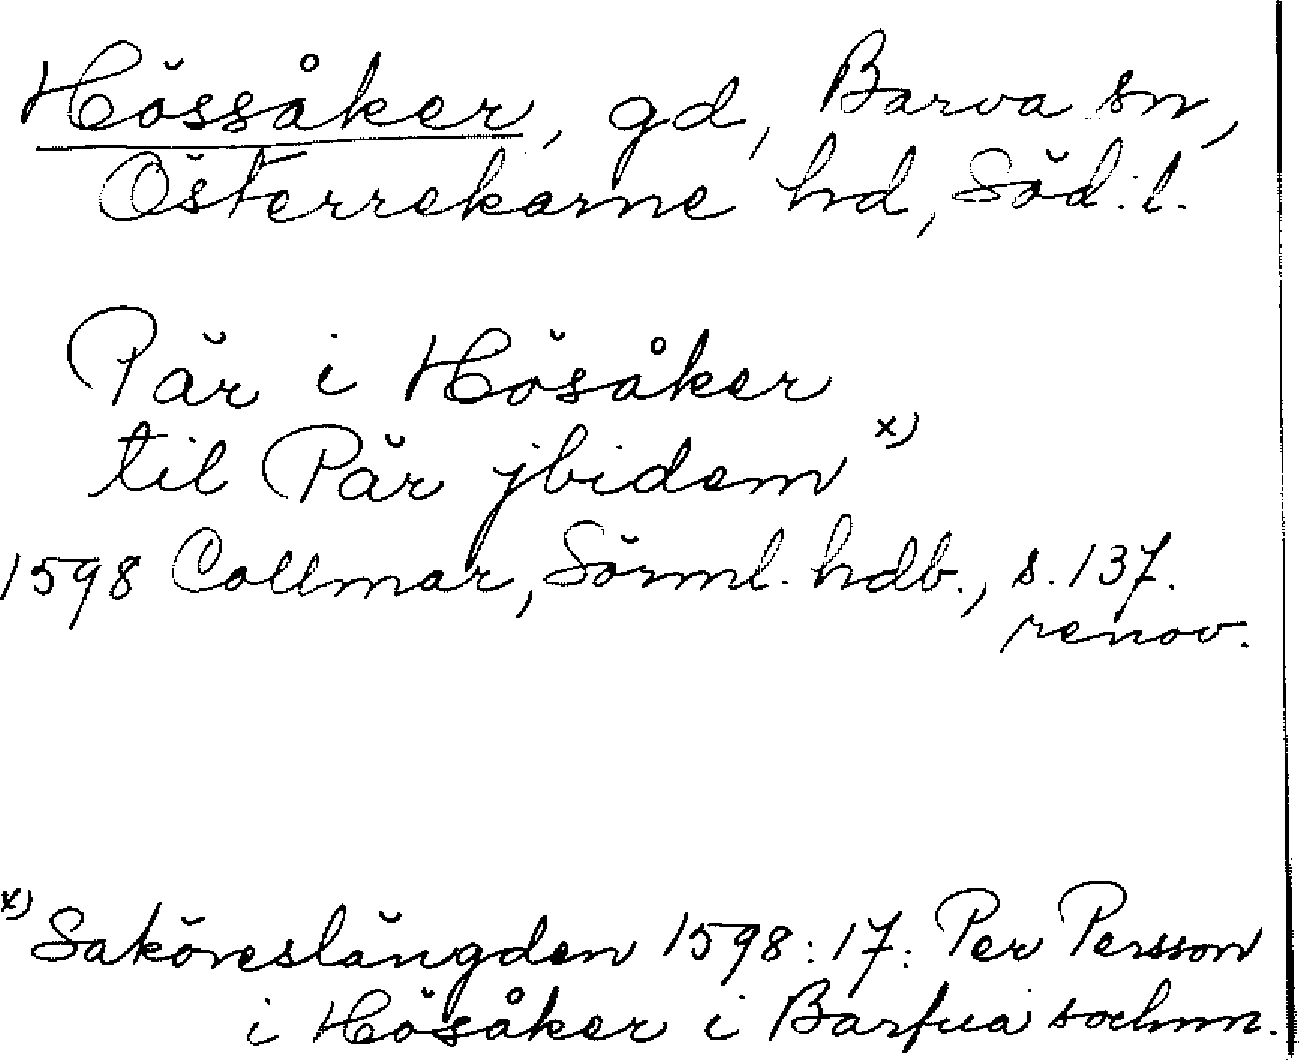 Hössåker, gd, Barva sn,
Österrekarne hd, Söd. l.
Pär i Hösåker
til Pär jbidem x)
1598 Collmar, Sörml. hdb., s. 137.
renov.
x) Saköreslängden 1598: 17: Per Persson
i Hösåker i Barfua sochnn.